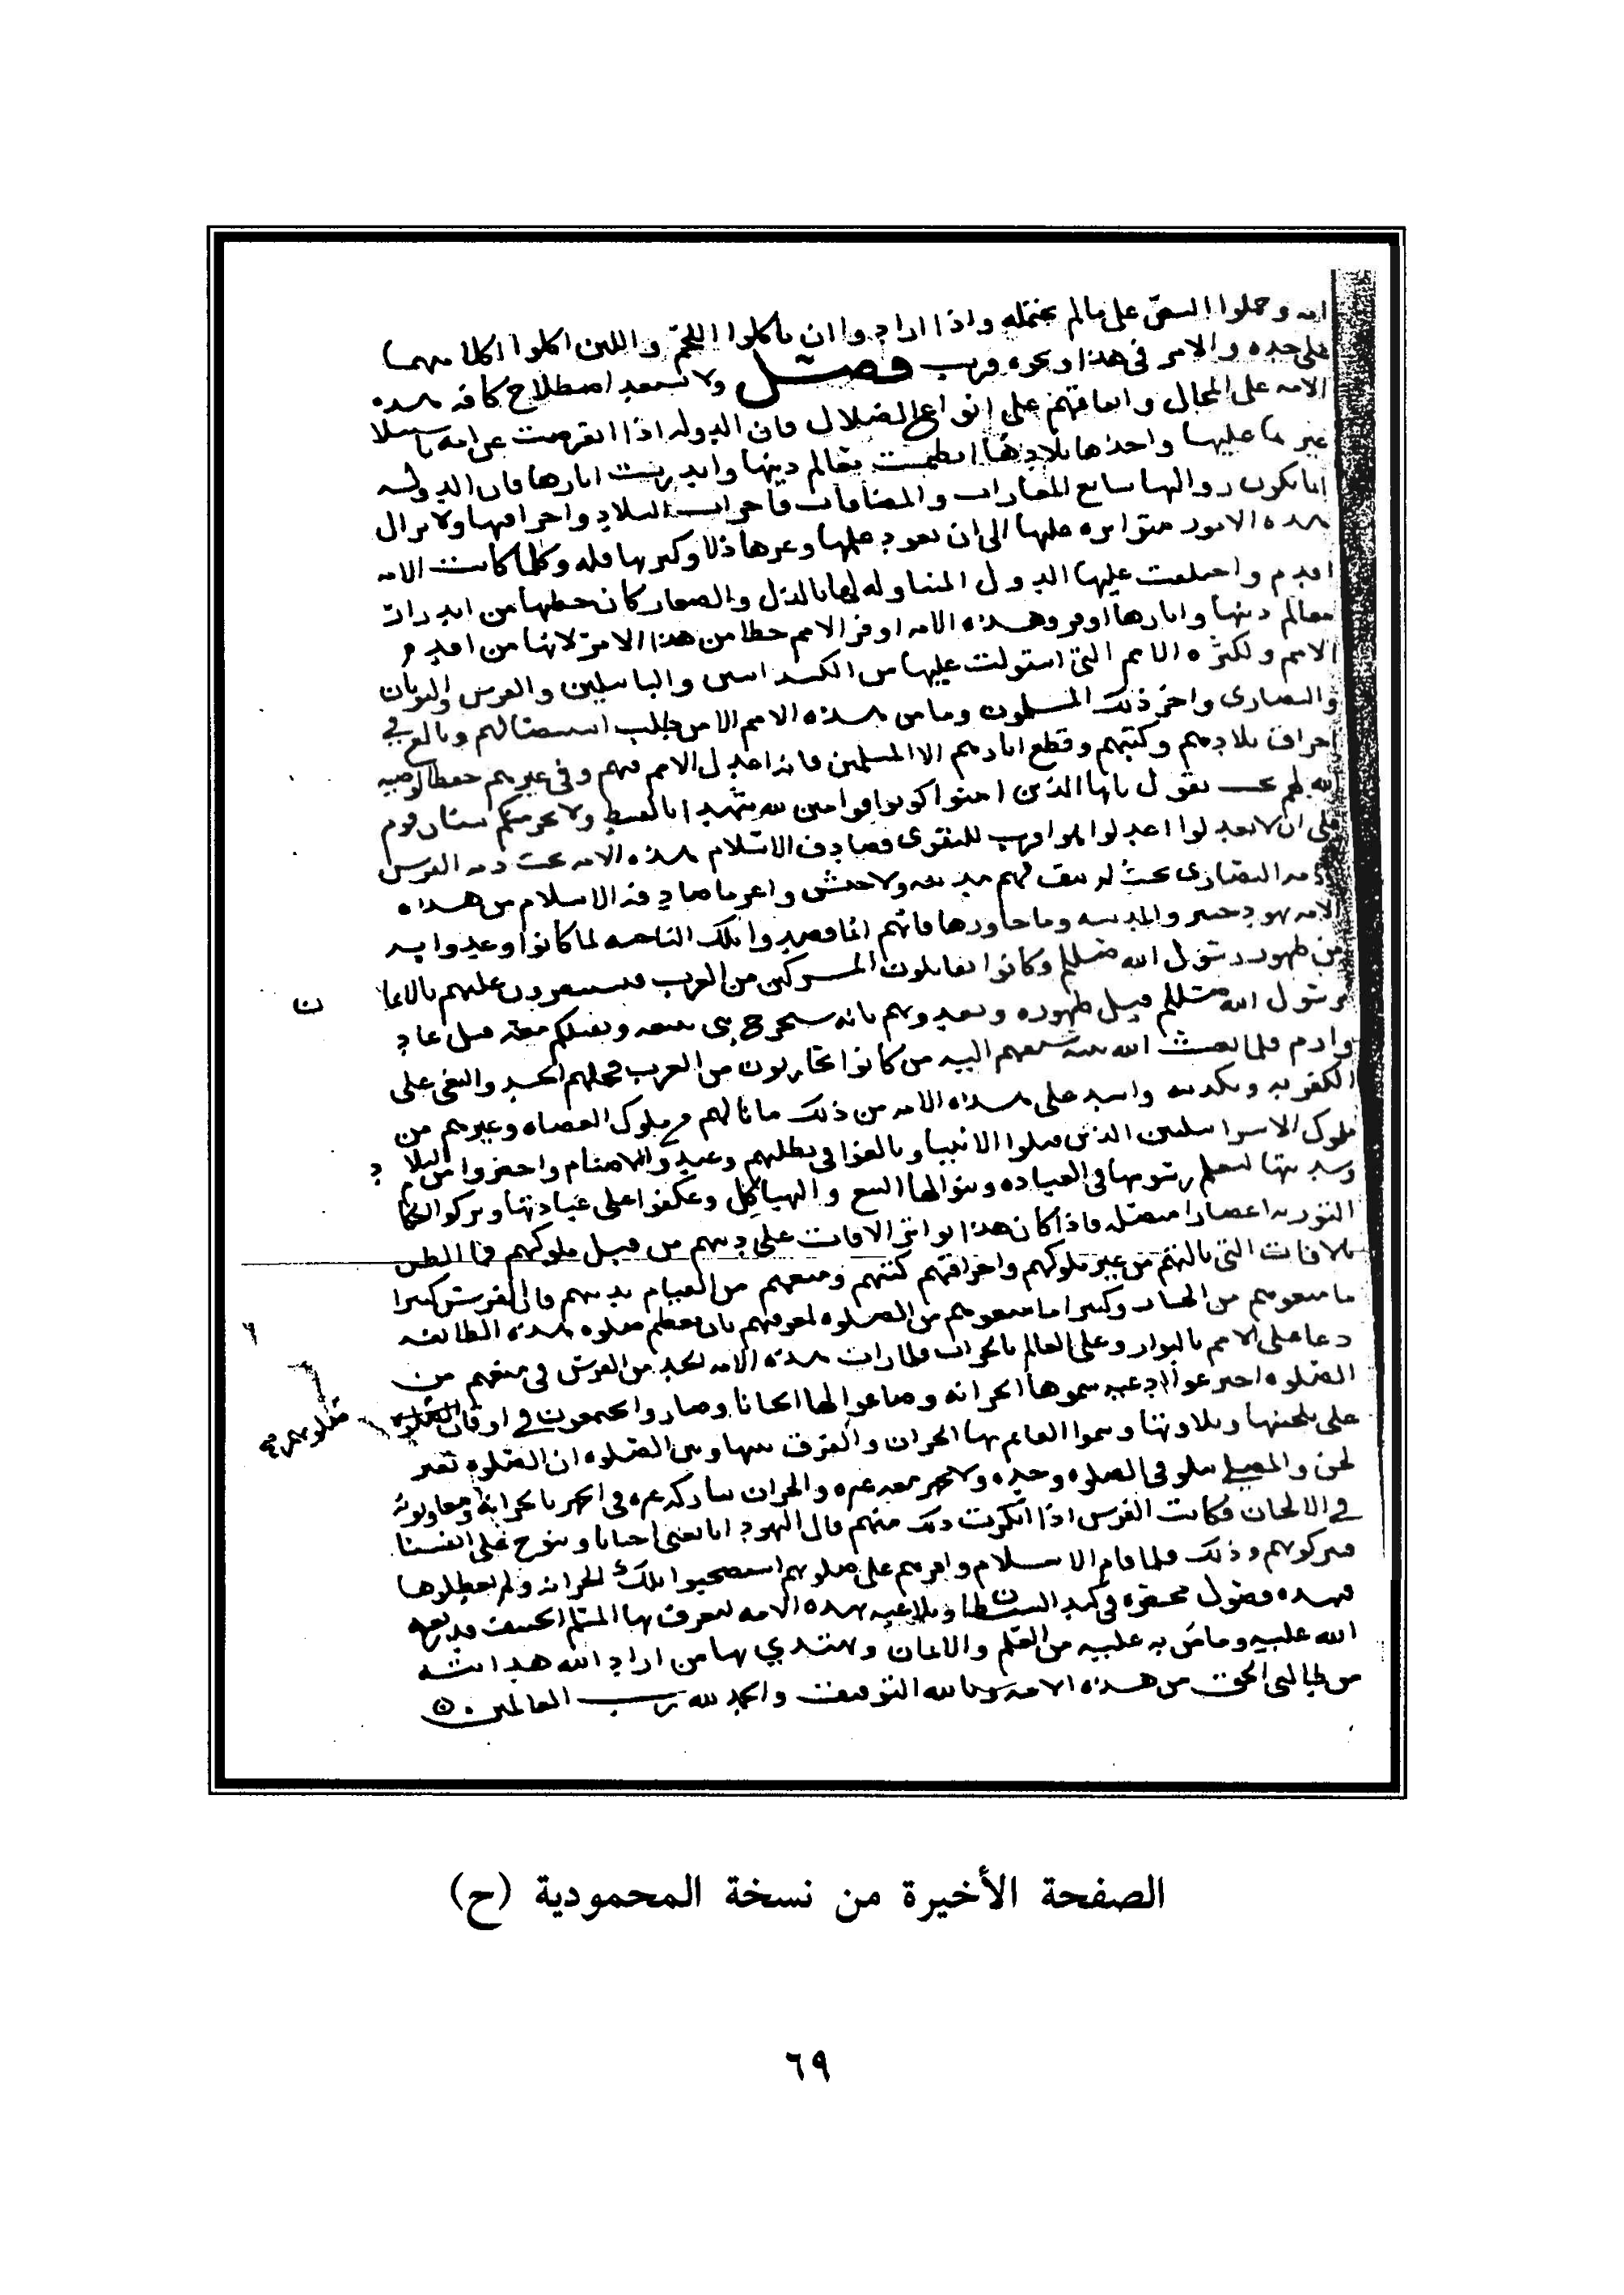 امه وحملوا النص على ما لم يحتمله واذا ارادوا ان ياكلوا اللحم واللبن اكلوا كلا منهما
على حده والامر فى هذا ونحوه قريب فصل ولا تستبعد اصطلاح كافه هذه
الامه على المحال واتفاقهم على انواع الضلال فان الدوله اذا انقرضت عن امه باستيلا
غيرها عليها واخذها بلادها انطمست معالم دينها واندرست اثارها فان الدوله
انما يكون زوالها بتتابع الغارات والمصافات واخراب البلاد واحراقها ولا تزال
هذه الامور متواتره عليها الى ان يعود علمها وعزها ذلا وكثرتها قله وكلما كانت الامه
اقدم واختلفت عليها الدول المتناوله لها بالذل والصغار كان حظها من اندراس
معالم دينها واثارها اوفر وهذه الامه اوفر الامم حظا من هذا الامر لانها من اقدم
الامم ولكثره الامم التى استولت عليها من الكسدانيين والبابليين والفرس واليونان
والنصارى واخر ذلك المسلمون وما من هذه الامم الا من طلب استئصالهم وبالغ في
احراق بلادهم وكتبهم وقطع اثارهم الا المسلمين فانه اعدل الامم فيهم وفى غيرهم حفظا لوصيه
الله لهم حيث يقول يايها الذين امنوا كونوا قوامين لله شهدا بالقسط ولا يجرمنكم شنان قوم
على ان لا تعدلوا اعدلوا هو اقرب للتقوى وصادف الاسلام هذه الامه تحت ذمه الفرس
وذمه النصارى بحيث لم يبق لهم مدينه ولا جيش واعز ما صادفه الاسلام من هذه
الامه يهود خيبر والمدينه وما جاورها فانهم انما قصدوا تلك الناحيه لما كانوا وعدوا به
من ظهور رسول الله صللم وكانوا يقاتلون المشركين من العرب فيستنصرون عليهم بالايما
ن
برسول الله صللم قبل ظهوره ويعدونهم بانه سيخرج نبى نتبعه ونقتلكم معه قتل عاد
وارم فلما بعث الله نبيه سبقهم اليه من كانوا يحاربون من العرب فحملهم الحسد والبغى على
الكفر به وتكذيبه واشد على هذه الامه من ذلك ما نالهم من ملوك العصاه وغيرهم من
ملوك الاسراييليين الذين قتلوا الانبيا وبالغوا فى تطلبهم وعبدوا الاصنام واحضروا من البلاد
وسدنتها لتعلم رسومها فى العباده وبنوا لها البيع والهياكل وعكفوا على عبادتها وتركوا احكام
التوريه اعصارا متصله فاذا كان هذا تواتر الافات على دينهم من قبل ملوكهم فما الظن
بالافات التى نالتهم من غير ملوكهم واحراقهم كتبهم ومنعهم من القيام بدينهم فان الفرس كثيرا
ما منعوهم من الختان وكثيرا ما منعوهم من الصلوه لمعرفتهم بان معظم صلوه هذه الطائفه
دعا على الامم بالبوار وعلى العالم بالخراب فلما رات هذه الامه الجد من الفرس فى منعهم من
الصلوه اخترعوا ادعيه سموها الحزانه وصاغوا لها الحانا وصاروا يجتمعون في اوقات الصلوه
على تلحينها وتلاوتها وسموا القايم بها الحزان والفرق بينها وبين الصلوه ان الصلوه بغير
لحن والمصلى يتلو فى الصلوه وحده ولا يجهر معه غيره والحزان يشاركه غيره فى الجهر بالحزانه ومعاونونه
في الالحان وكانت الفرس اذا انكرت ذلك منهم قال اليهود انا نغنى احيانا وننوح على انفسنا
فتركوهم وذلك فلما قام الاسلام واقرهم على صلوتهم استصحبوا تلك الحزانه ولم يعطلوها
فهذه فصول مختصره في كيد الشيطان وتلاعبه بهذه الامه ليعرف بها المسلم الحنيف قدر نعمه
الله عليه وما من به عليه من العلم والايمان ويهتدي بها من اراد الله هدايته
من طالبى الحق من هذه الامه وبالله التوفيق والحمد لله رب العالمين
الصفحة الأخيرة من نسخة المحمودية (ح)
٦٩